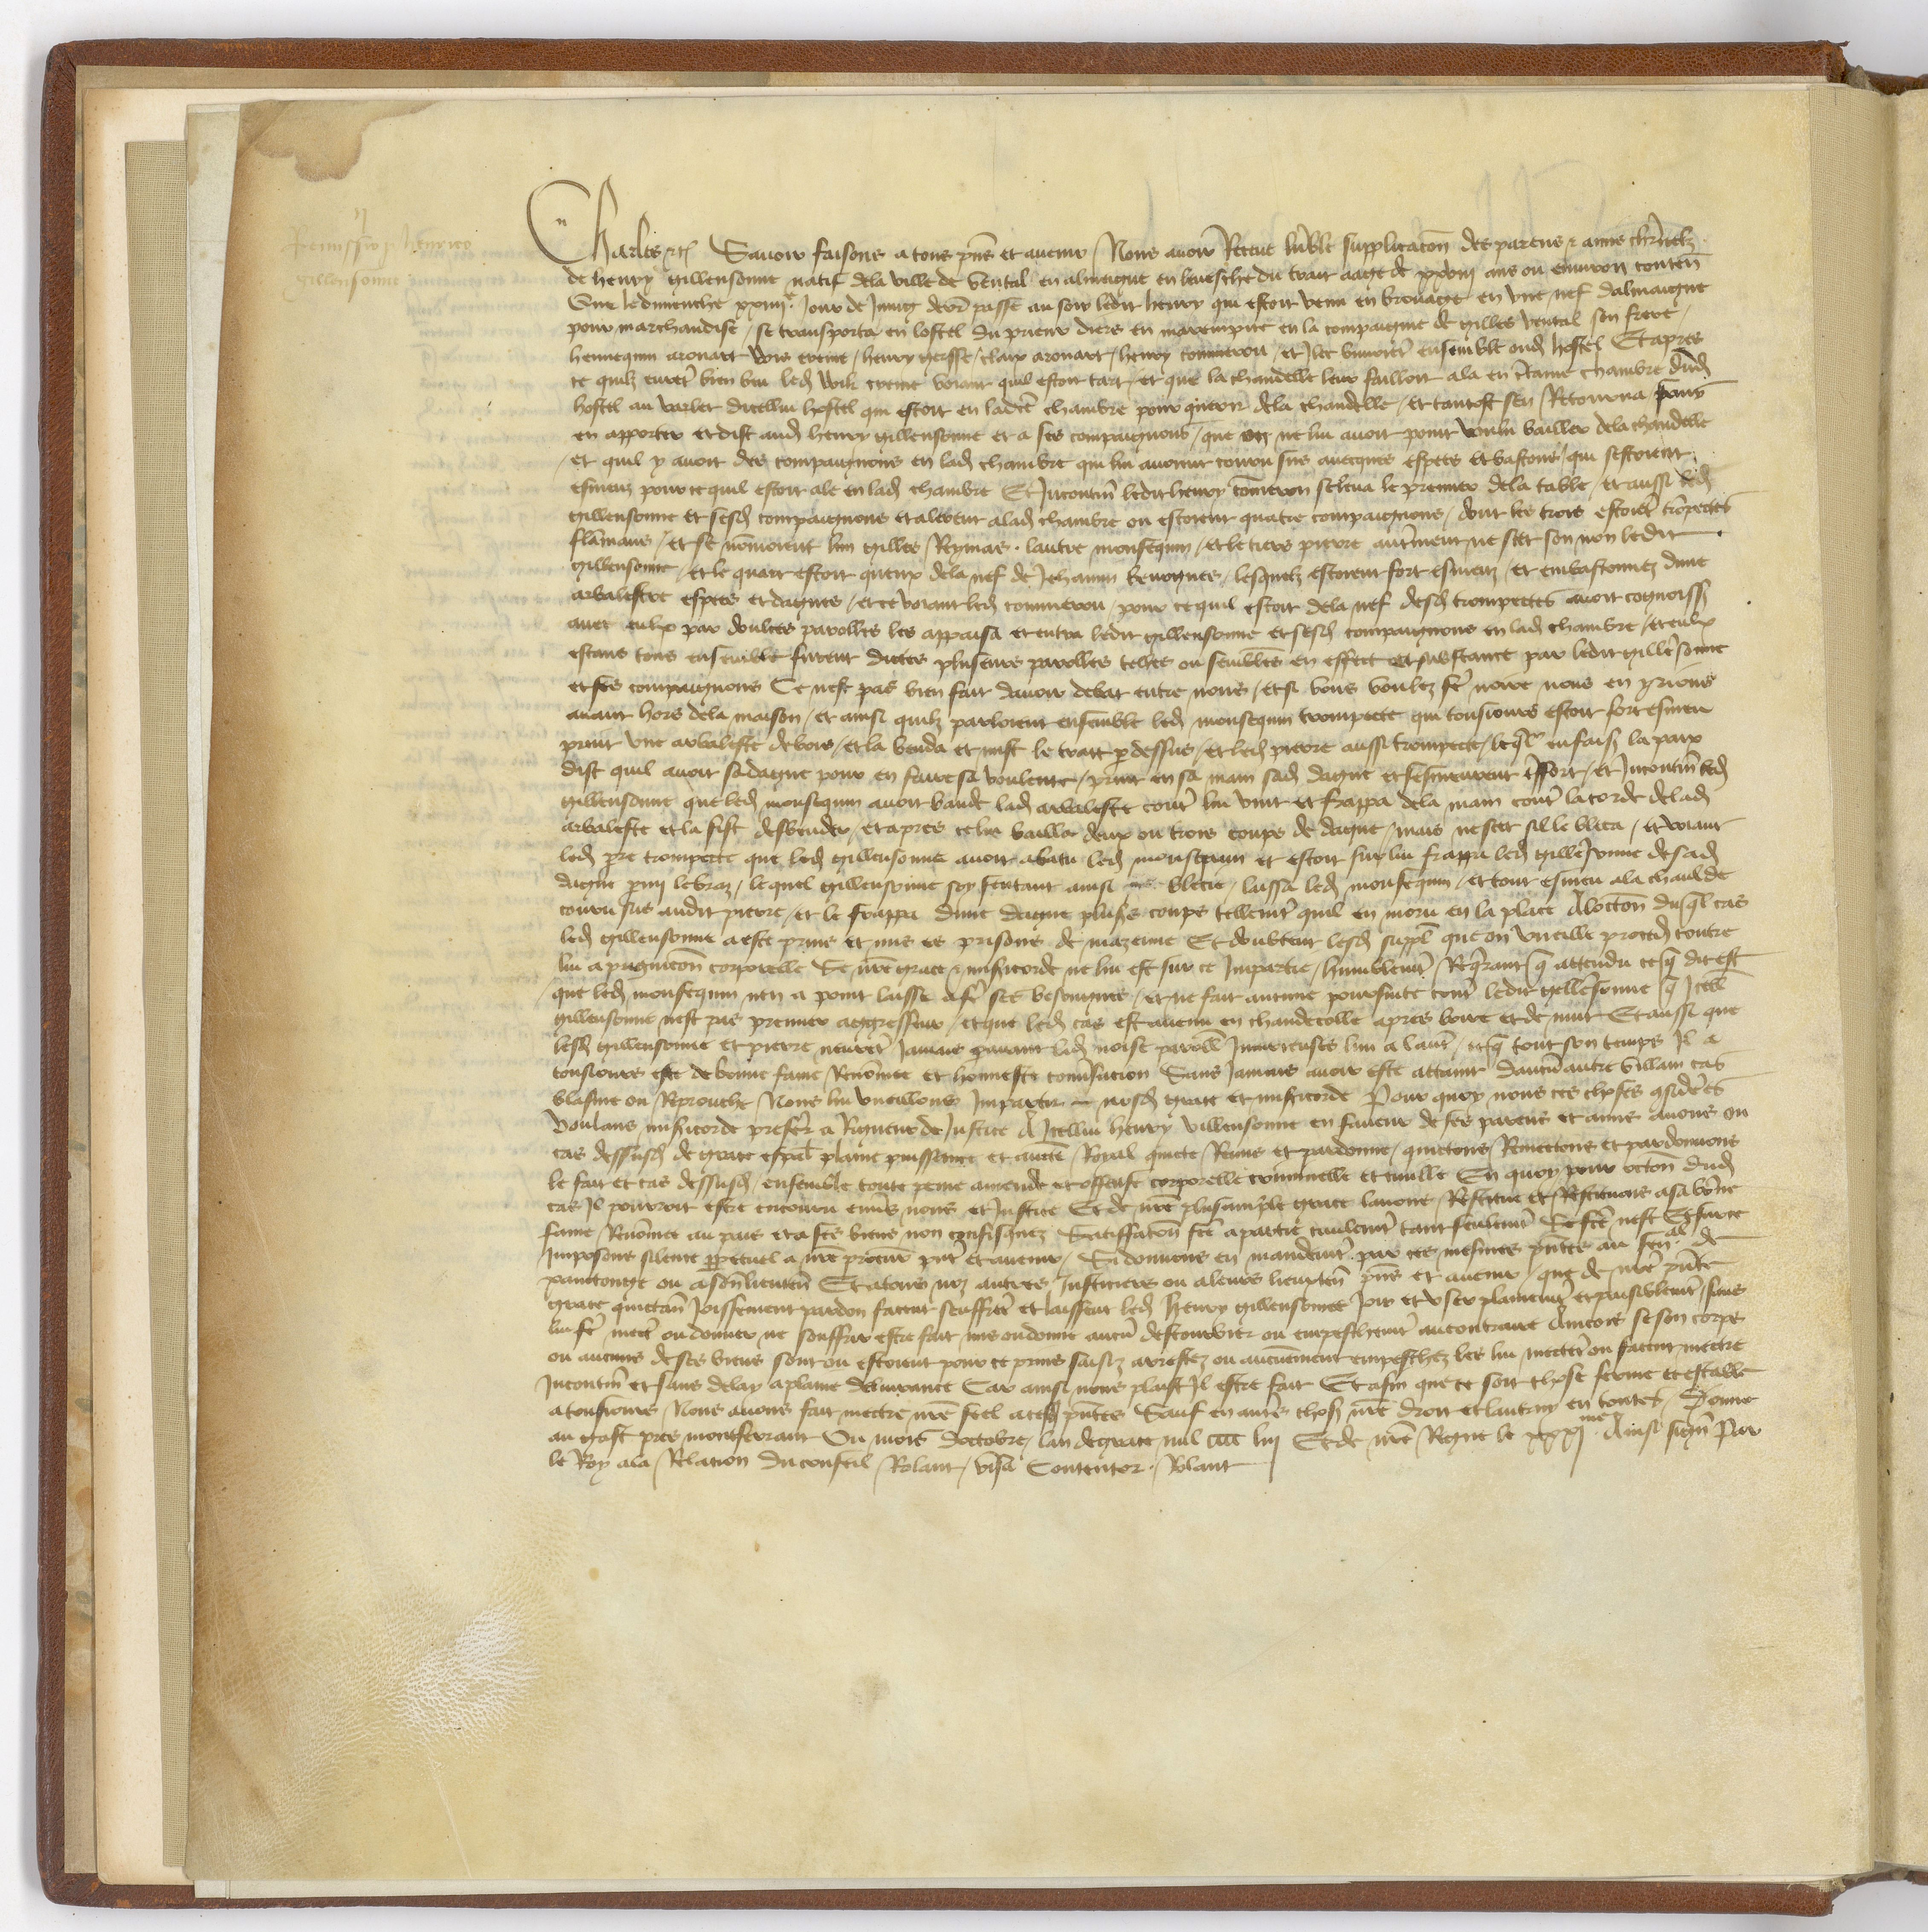 ij
Remissio p henrico
gillensonne
Charles etc Savoir faisons a tous pñs et avenir / Nous avoir Receue lũble supplicacõn des parens & amis charnelz
de henry gillensonne natif dela ville de Vental en almaigne en leveschie du trait aagé de xxviij ans ou environ contenñ
Que le dimenche xxiiije jour de Juing derrñ passé au soir ledit henry qui estoit venu en brouage en une nef dalmaigne
pour marchandise / se transporta en lostel du prieur diers en marempne en la compaignie de gilles vental son frere /
hennequin aronart / henry / claix aronart / henry conneron / et Ilec ensemble oud hostel Et apres
ce quilz eurẽt bien beu led voiant quil estoit tart / et que la chandelle leur failloit ala en cẽtaine chambre dud
hostel au varlet dicellui hostel qui estoit en ladcẽ chambre pour querir dela chandelle / et tantost sen Retourna pour
en apporter et dist aud henry gillensonne et a ses compaignons / que on ne lui avoit point voulu bailler dela chandelle
/ et quil y avoit des compaignons en lad chambre qui lui avoient couru sus avecques espees et bastons / qui sestoient
esmeuz pource quil estoit ale en lad chambre Et Incontinẽ ledit henry conneron se leva le premier dela table / et aussi led
gillensonne et sesd compaignons et alerent alad chambre ou estoient quatre compaignons / dont les trois estoiẽt trõpectes
flamans / et se nõmoient lun gilles Reymas . lautre monsequin / et le tiers pierre autrement ne scet son non ledit
gillensonne / et le quart estoit queux dela nef de Jehanin / lesquelz estoient fort esmeuz / et embastonnez dune
arbalestre espees et dagues / et ce voiant led conneron / pour ce quil estoit dela nef desd trompectes avoit cognoissẽ
avec eulx par doulces parolles les appaisa et entra ledit gillensonne et sesd compaignons en lad chambre / et eulx
estans tous ensemble furent dictes pluseurs parolles telles ou semblẽs en effect et substance par ledit gillẽsonne
et ses compaignons Ce nest pas bien fait davoir debat entre nous / et si vous voulez fẽ nous en yrions
avant hors dela maison / et ainsi quilz parloient ensemble led monsequin trompecte qui tousiours estoit fort esmeu
print une arbaleste de bois / et la benda et mist le trait p dessus / et led pierre aussi trompecte / leql en fais la paix
dist quil avoit sa dague pour en faire sa voulente / print en sa main sad dague et sesmeurent / et Incontinẽ led
gillensonne que led monsequin avoit bandé lad arbaleste contẽ lui vint et frappa dela main contẽ la corde delad
arbaleste et la fist desbender / et apres ce lui bailla deux ou trois coups de dague / mais ne scet sil le bleca / et voiant
led pre trompecte que led gillensonne avoit abatu led monsequin et estoit sur lui frappa led gillẽsonne de sad
dague pmi le braz / lequel gillensonne soy sentant ainsi blecie / laissa led monsequin / et tout esmeu ala chaulde
couru sus audit pierre / et le frappa dune dague plusẽs coups tellemẽt quil en moru en la place A loccõn duql cas
led gillensonne a esté prins et mis es prisons de mazeinne Et doubtent lesd supplẽ que on vueille proced contre
lui a pugnicõn corporelle Se nrẽ grace & misicorde ne lui est sur ce Impartie / humblemẽt Reqrant q attendu ce q dit est
/ que led monsequin nen a point laissé a fẽ ses besongnes / et ne fait aucune poursuite contẽ ledit gillẽsonne q Icell
gillensonne nest pas premier aggresseur / et que led cas est avenu en chaudecolle apres boire et de nuit Et aussi que
lesd gillensonne et pierre neurẽt Jamais pavant lad noise parolẽ Iniurieuses lun a lautẽ / et q tout son temps Il a
tousiours esté de bonne fame Renõmee et honneste convsacion Sans Jamais avoir esté attaint daucũ autre villain cas
blasme ou Reprouche Nous lui vueillons Impartir nosd grace et misicorde Pour quoy nous ces choses csidẽes
Voulans misicorde prefeẽr a Rigueur de Justice A Icellui henry villensonne en faveur de ses parens et amis avons ou
cas dessusd de grace espãl plaine puissance et auctẽ Royal quicté Remis et pardonné / quictons Remectons et pardonnons
le fait et cas dessusd / ensemble toute peine amende et offense corporelle criminelle et civille En quoy pour occõn dud
cas Il pourroit estre encouru envẽs nous et Justice Et de nrẽ plus ample grace lavons Restitué et Restituons a sa bõne
fame Renõmee au pais et a ses biens non confisquez Satisffacõn fcẽ a partie civilemẽt tant seulemẽt Se fcẽ nest Et surce
Imposons silence ppetuel a nrẽ procurẽ pñt et avenir / Si donnons en mandemẽt par ces mesmes pñtes au senal de
xanctonge ou a son lieutenẽ Et a tous noz autres Justiciers ou a leurs lieutenẽ pñs et avenir / que de nrẽ pñte
grace quictanẽ Joissement pardon facent seuffrẽt et laissent led henry gillensonne joir et user plainemẽt et paisiblemẽt / sans
lui fẽ mectẽ ou donner ne souffrir estre fait mis ou donné aucũ destourbier ou empeschemẽt au contraire Aincois se son corps
ou aucuns de ses biens sont ou estoient pour ce prins saisiz arrestez ou aucunement empeschez les lui mectẽt ou facent mectre
Incontinẽ et sans delay a plaine delivrance Car ainsi nous plaist Il estre fait Et afin que ce soit chose ferme et estable
a tousiours Nous avons fait mectre nrẽ seel a cesd pñtes Sauf en autẽs chosẽ nrẽ droit et lautruy en toutes / Donné
au gast pres montferrant Ou mois doctobre / lan de grace mil cccc lij Et de nrẽ Regne le xxxjme Ainsi signẽ Par
le Roy ala Relacion du conseil Rolant / visa Contentor . Rolant